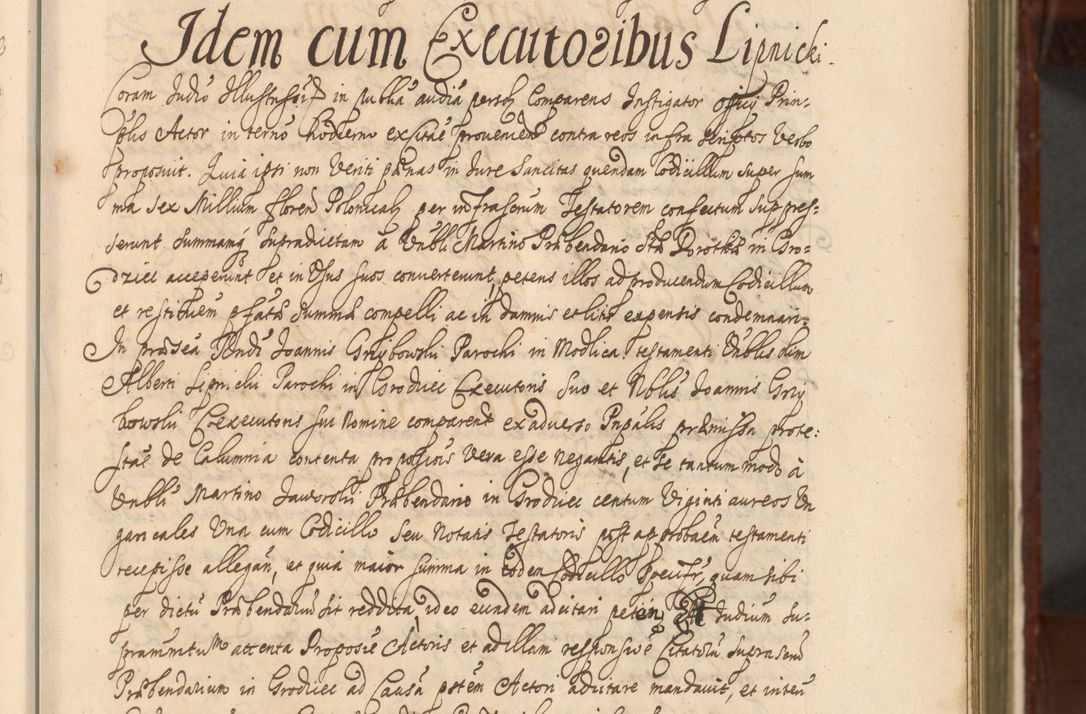 Idem cum Executoribus Lipnicki.
Coram Judio Illustrssi in publica audia persolr Comparens Instigator officij Prin-
plis Actor in terno hodierno ex citae proveniend contra reos infra scriptos Verbo
proposuit. Quia ipsi non Veriti paenas in Jure Sancitas quendam Codicillum super sum
ma sex Millium floren Polonicalq per infraserum Testatorem confectum suppres-
serunt summamq supradictam à Vnbli Martino Præbendario Stæ Dorothæ in Gro-
dziec acceperunt et in Usus suos converterunt, petens illos ad producendum Codicillum
et restituem pfatæ summæ compelli ac in damnis et litis expensis condemnari.
In præsea Joannis Grzybowski Parochi in Modlica testamenti Vnblis olim
Alberti Lipnickij Parochi in Grodziec Executoris suo et Nblis Joannis Grzy
bowski Coexecutoris sui Nomine comparens ex adverso Pnpalis præmissa prote-
stae de Calumnia contenta propositois Vera esse Negantis, et se tantum modo à
Vnbli Martino Jaworski Præbendario in Grodziec centum Viginti aureos Vn
garicales Una cum Codicillo seu Notatis Testatoris post approbaen testamenti
recepisse allegan, et quia maior summa in eoden Codicillo specifr, quam sibi
per dictu Præbendariu sit reddita ideo eundem adcitari peten, Judium su-
prammitum attenta Proposie Actoris et ad illam responsive Citatoru suprascru
Præbendarium in Grodziec ad Causa potem Actori adcitare mandavit, et interu